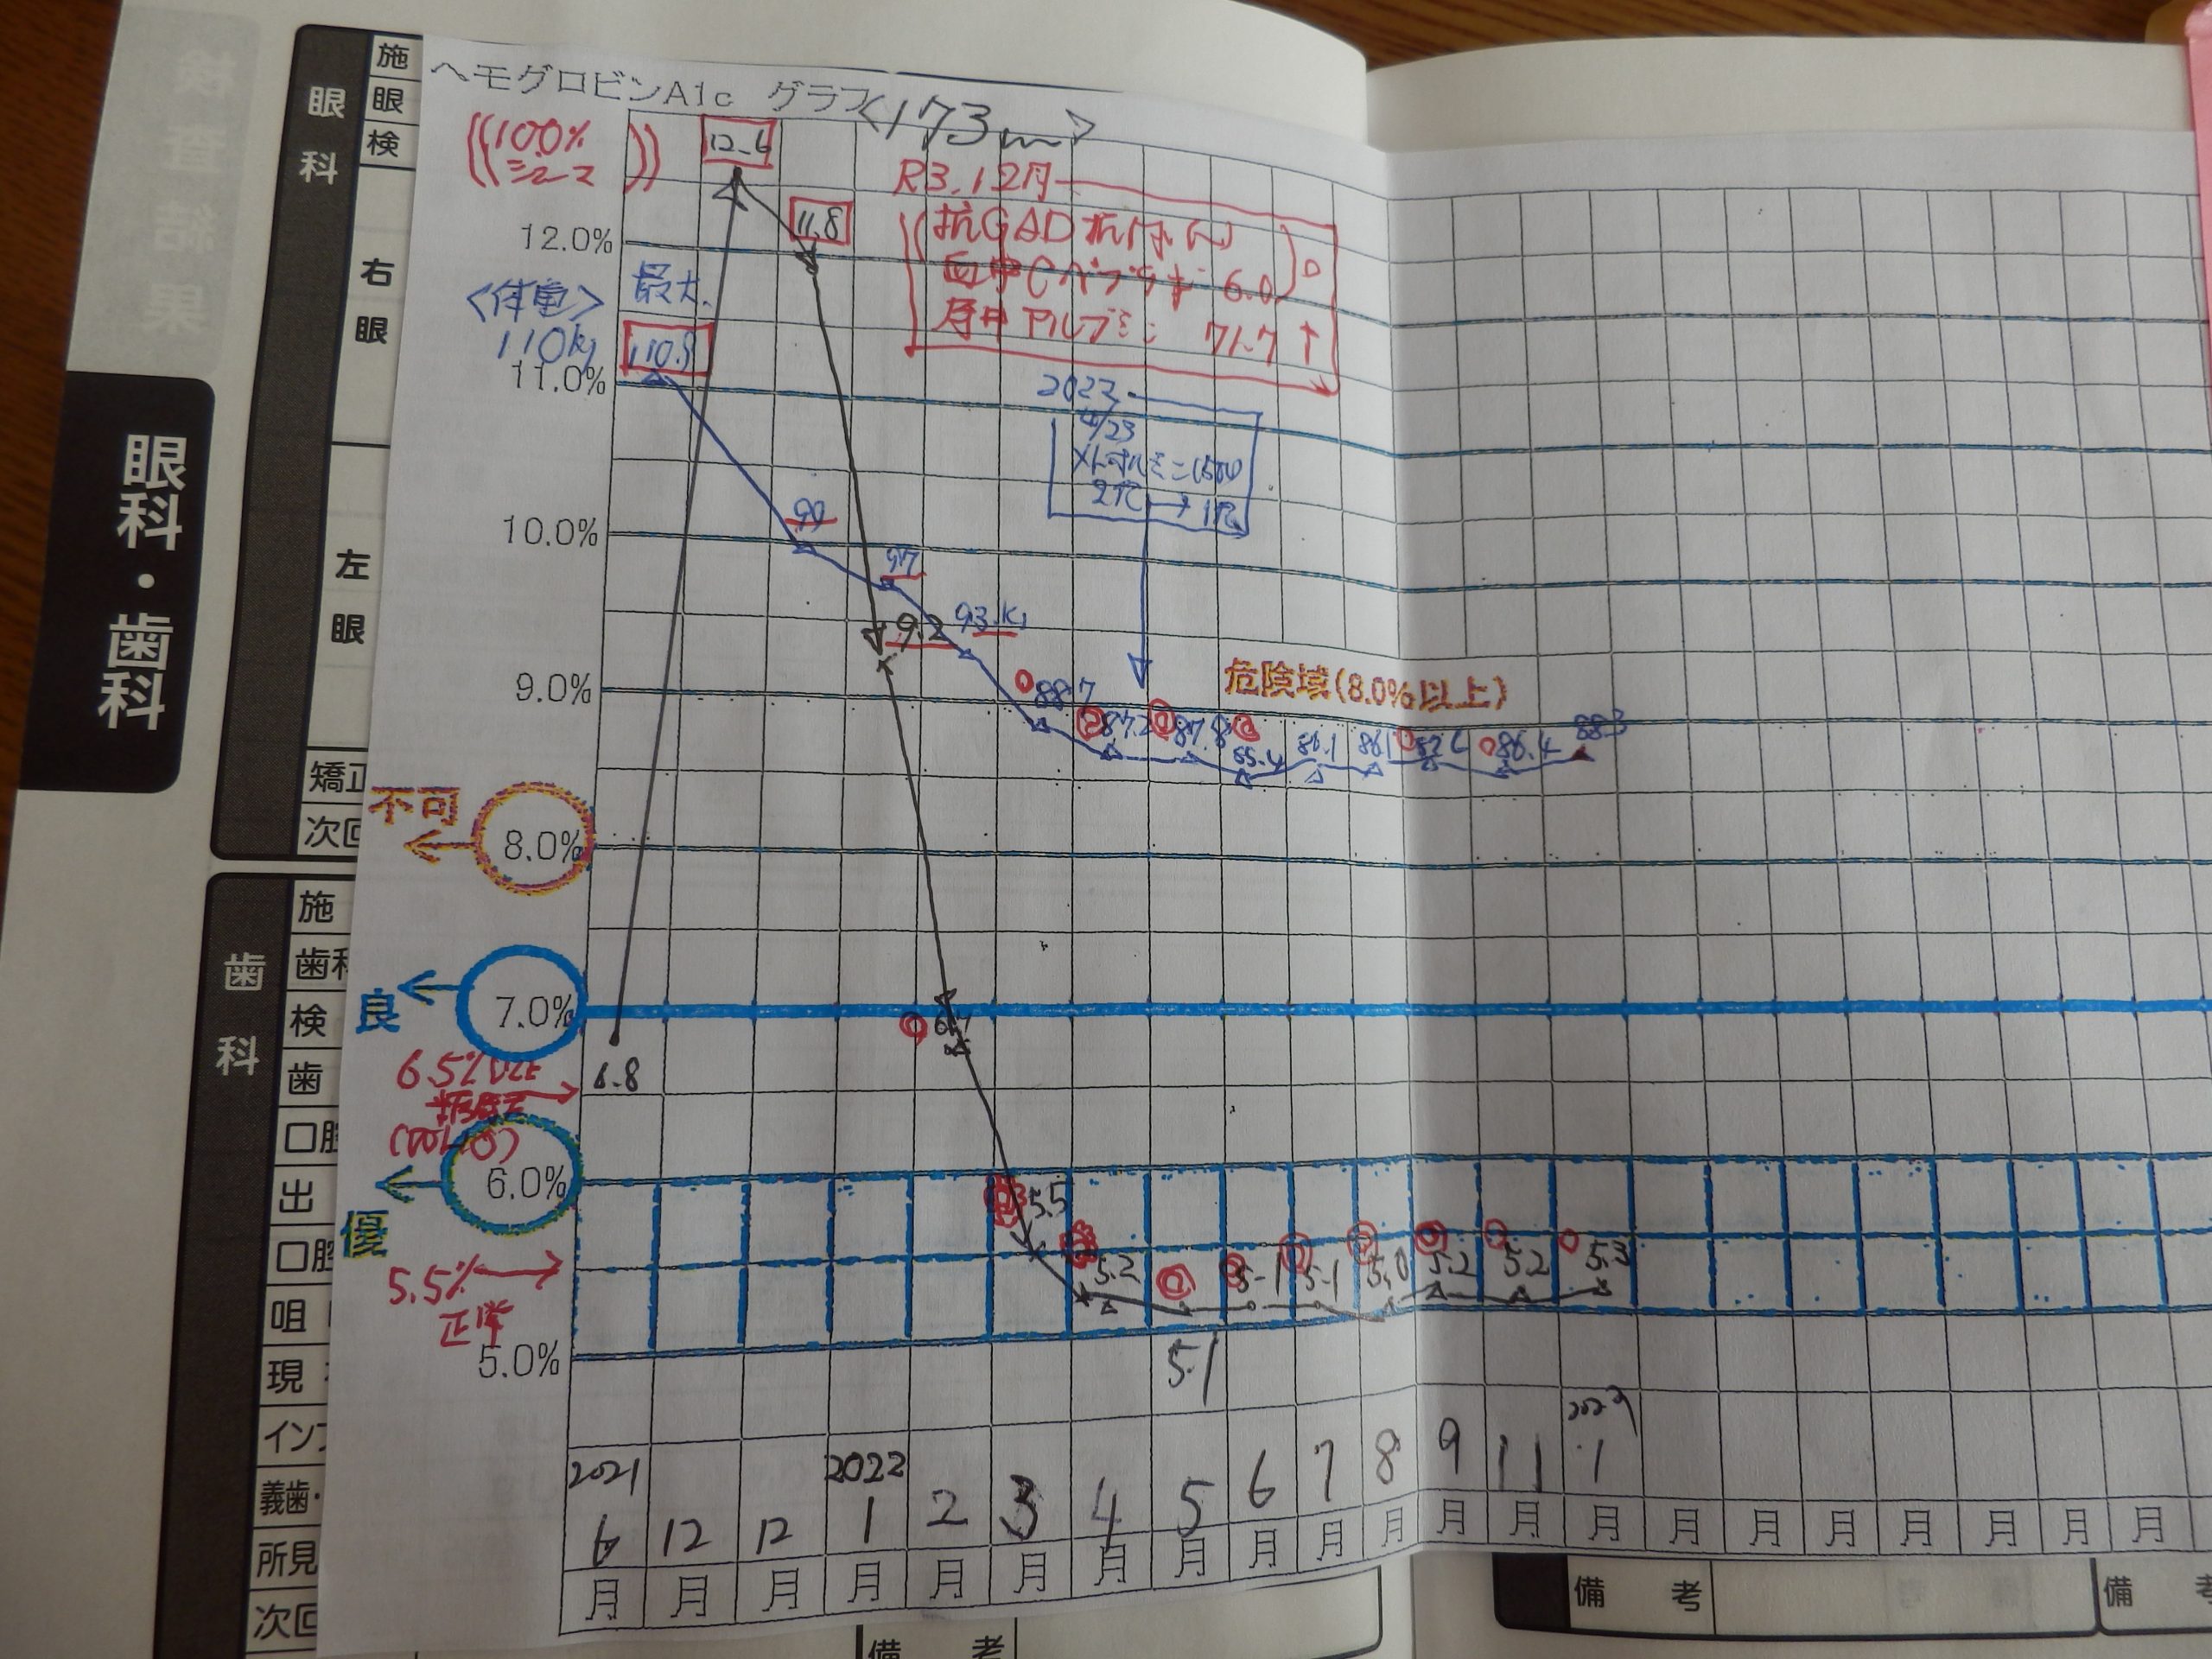 ヘモグロビンA1c グラフ
<173cm>
12.6
11.8
R3.12月
抗GAD抗体(-)
血中Cペプチド 6.0
尿中アルブミン 71.7 ↑
12.0%
<体重>
最大
110kg
110.9
11.0%
2022
4/23
2T → 1T
10.0%
99
97
9.2
93.K
9.0%
危険域(8.0%以上)
88.7
87.2
87.8
85.4
86.1
86.1
86.4
88.3
不可
8.0%
良
7.0%
6.7
6.8
6.5%以上
6.0%
優
5.5
5.5%
正常
5.2
5.1
5.1
5.0
5.2
5.2
5.3
5.0%
5.1
2021
2022
6 12 12 1 2 3 4 5 6 7 8 9 11 1
月 月 月 月 月 月 月 月 月 月 月 月 月 月 月 月 月 月 月 月 月
検査結果
眼科・歯科
眼科
施
眼
検
右
眼
左
眼
矯正
次回
歯科
施
歯科
検
歯
口腔
出
口腔
咀
現
イン
義歯・
所見
次回
備考
備考
備考